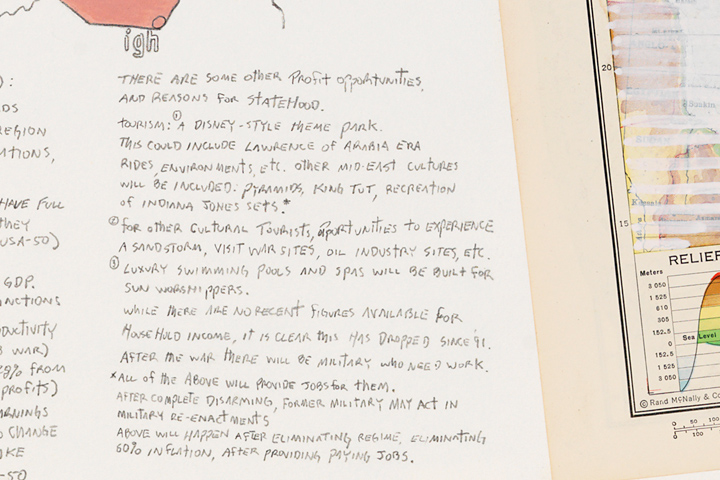 igh
THERE ARE SOME OTHER PROFIT OPPORTUNITIES,
AND REASONS FOR STATEHOOD.
TOURISM: ① A DISNEY-STYLE THEME PARK.
THIS COULD INCLUDE LAWRENCE OF ARABIA ERA
RIDES, ENVIRONMENTS, ETC. OTHER MID-EAST CULTURES
WILL BE INCLUDED: PYRAMIDS, KING TUT, RECREATION
OF INDIANA JONES SETS.*
② FOR OTHER CULTURAL TOURISTS, OPORTUNITIES TO EXPERIENCE
A SANDSTORM, VISIT WAR SITES, OIL INDUSTRY SITES, ETC.
③ LUXURY SWIMMING POOLS AND SPAS WILL BE BUILT FOR
SUN WORSHIPPERS.
WHILE THERE ARE NO RECENT FIGURES AVAILABLE FOR
HOUSEHOLD INCOME, IT IS CLEAR THIS HAS DROPPED SINCE '91.
AFTER THE WAR THERE WILL BE MILITARY WHO NEED WORK.
*ALL OF THE ABOVE WILL PROVIDE JOBS FOR THEM.
AFTER COMPLETE DISARMING, FORMER MILITARY MAY ACT IN
MILITARY RE-ENACTMENTS
ABOVE WILL HAPPEN AFTER ELIMINATING REGIME, ELIMINATING
60% INFLATION, AFTER PROVIDING PAYING JOBS.
):
DS
REGION
ATIONS,
HAVE FULL
THEY
USA-50)
GDP.
NCTIONS
DUCTIVITY
WAR)
28% FROM
PROFITS)
ARNINGS
CHANGE
KE
-50
20
15
RELIEF
Meters
3 050
1 525
610
305
152.5
0
152.5
1 525
3 050
Sea Level
© Rand McNally & Co
0 50 100
0 100